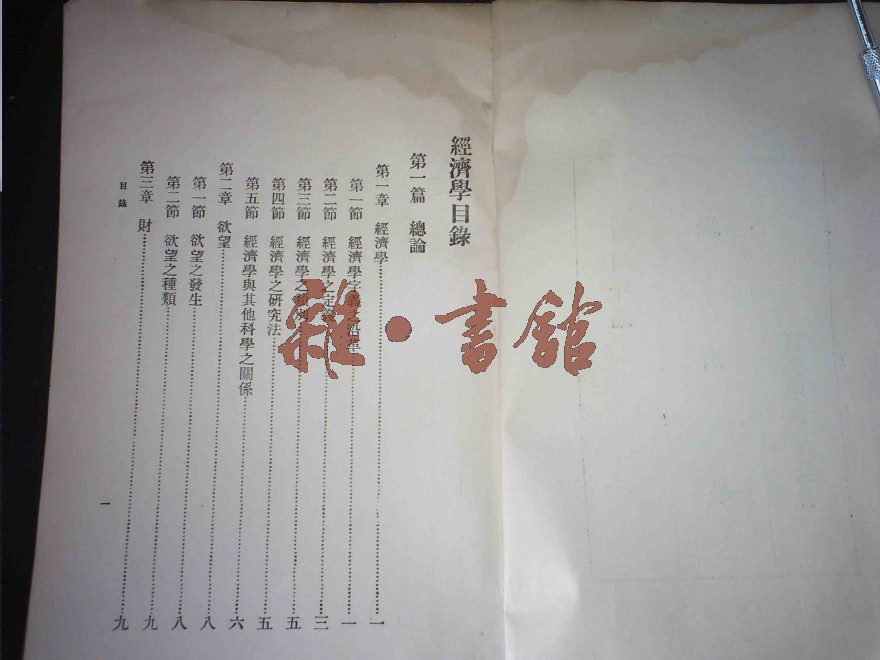 經濟學目錄
第一篇 總論
第一章 經濟學……一
第一節 經濟學字義之沿革……一
第二節 經濟學之定義……三
第三節 經濟學之別……五
第四節 經濟學之研究法……五
第五節 經濟學與其他科學之關係……六
第二章 欲望……八
第一節 欲望之發生……八
第二節 欲望之種類……九
第三章 財……九
目錄
一
雜·書館